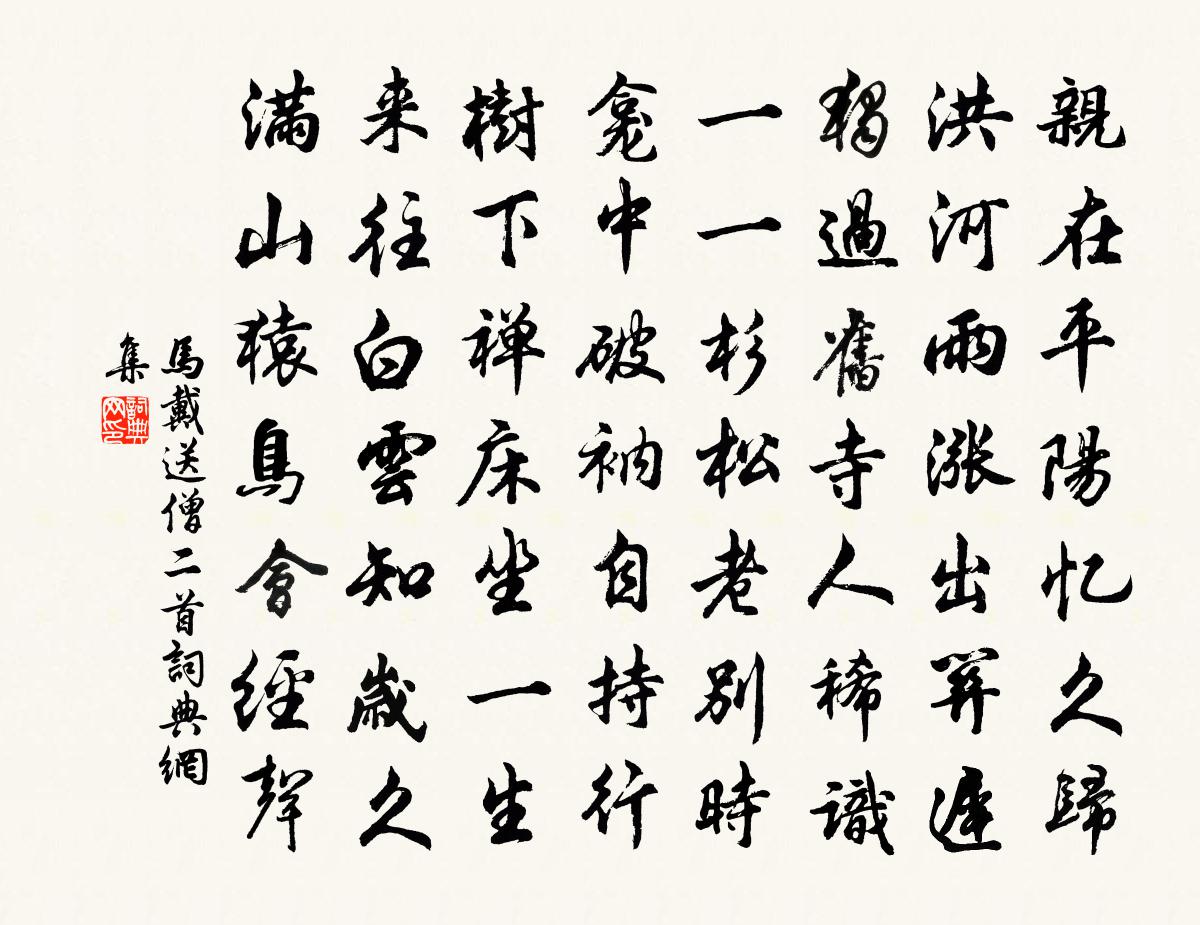 親在平陽忆久歸
洪河雨漲出關遲
獨過舊寺人稀識
一一杉松老別時
龕中破衲自持行
樹下禅床坐一生
来往白雲知歲久
滿山猿鳥會經聲
馬戴送僧二首詞典網
集
詞典网印